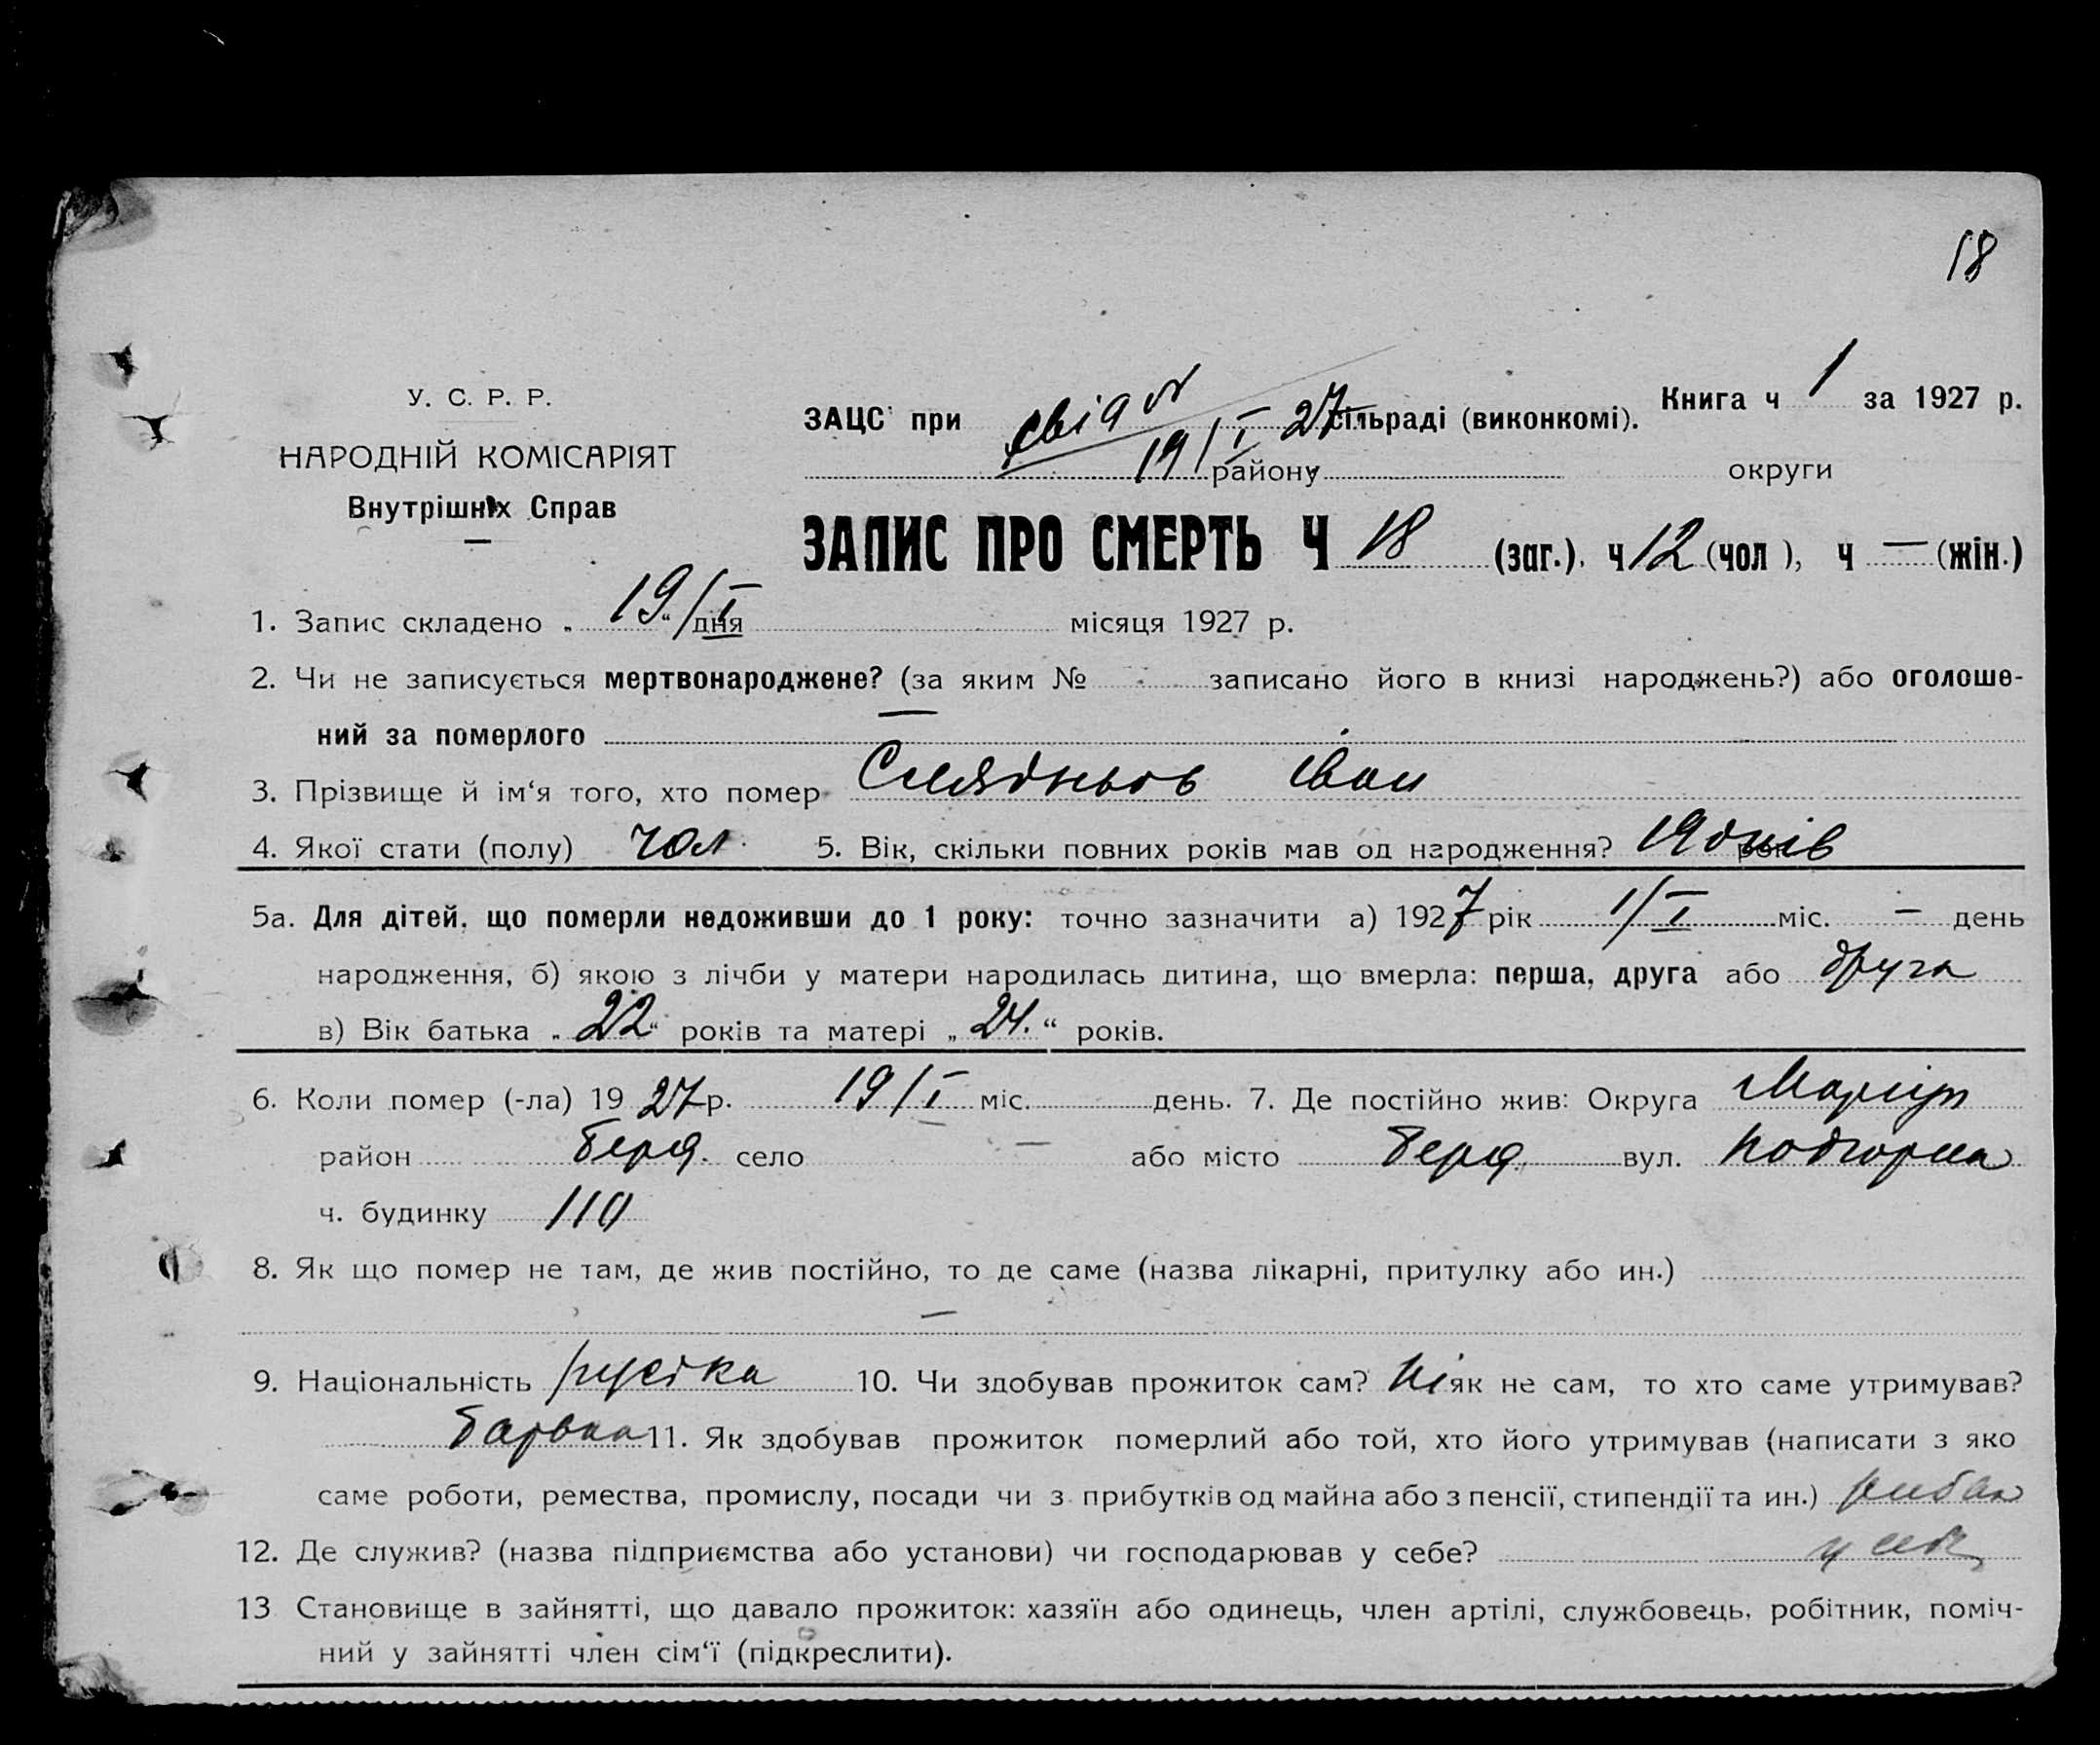 18
У. С. Р. Р.
НАРОДНІЙ КОМІСАРІЯТ
Внутрішніх Справ
ЗАЦС при 19/I 27 сільраді (виконкомі). Книга ч 1 за 1927 р.
району округи
ЗАПИС ПРО СМЕРТЬ Ч 18 (заг.). ч 12 (чол ), ч — (жін.)
1. Запис складено „ 19 “ /I дня місяця 1927 р.
2. Чи не записується мертвонароджене? (за яким № записано його в книзі народжень?) або оголоше-
ний за померлого —
3. Прізвище й ім‘я того, хто помер Іван
4. Якої стати (полу) чол. 5. Вік, скільки повних років мав од народження? 19 днів рок
5а. Для дітей, що померли недоживши до 1 року: точно зазначити а) 1927 рік 1/I міс. — день
народження, б) якою з лічби у матери народилась дитина, що вмерла: перша, друга або друга
в) Вік батька „ 22 “ років та матері „ 24. “ років.
6. Коли помер (-ла) 19 27 р. 19/I міс. — день. 7. Де постійно жив: Округа Маріуп
район Берд. село — або місто Берд. вул. Подгорна
ч. будинку 110
8. Як що помер не там, де жив постійно, то де саме (назва лікарні, притулку або ин.)
—
9. Національність 10. Чи здобував прожиток сам? Ні як не сам, то хто саме утримував?
11. Як здобував прожиток померлий або той, хто його утримував (написати з яко
саме роботи, ремества, промислу, посади чи з прибутків од майна або з пенсії, стипендії та ин.) рибак
12. Де служив? (назва підприємства або установи) чи господарював у себе? у себе
13 Становище в зайнятті, що давало прожиток: хазяїн або одинець, член артілі, службовець, робітник, поміч-
ний у зайнятті член сім‘ї (підкреслити).